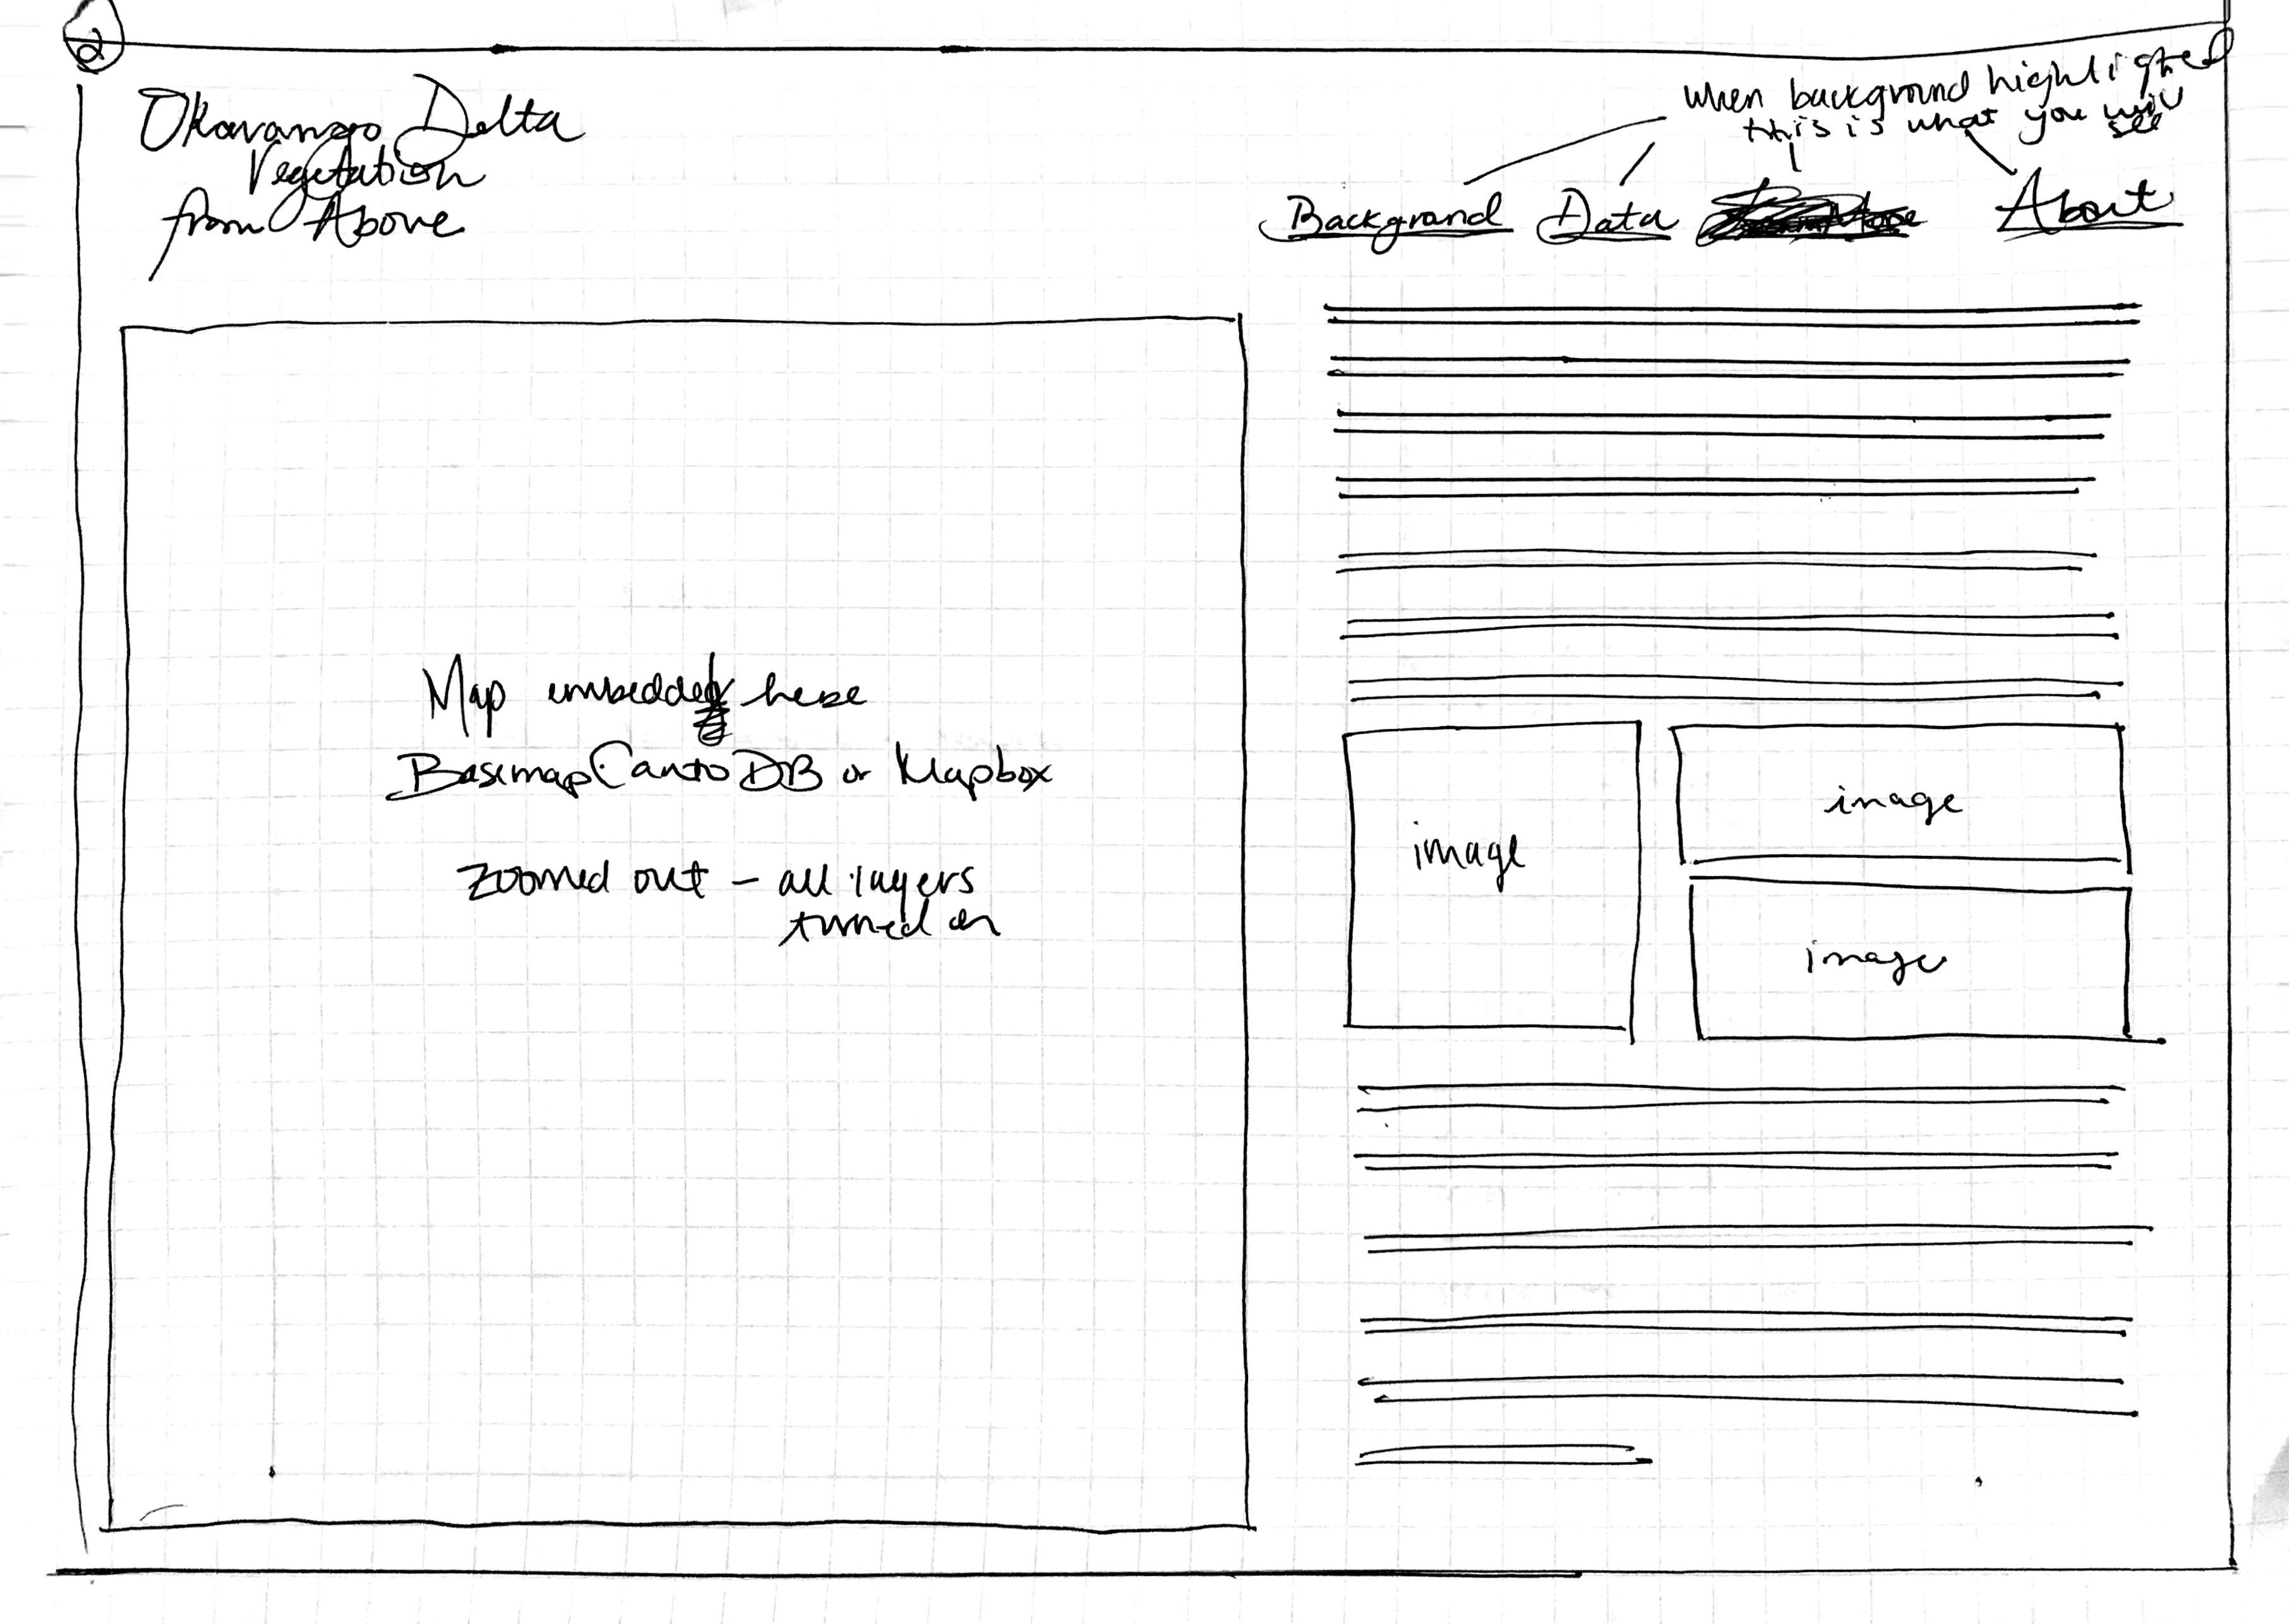 2
Okavango Delta
Vegetation
from Above
when background highlighted
this is what you will
see
Background Data About
Map embedded here
Basemap CartoDB or Mapbox
zoomed out - all layers
turned on
image
image
image